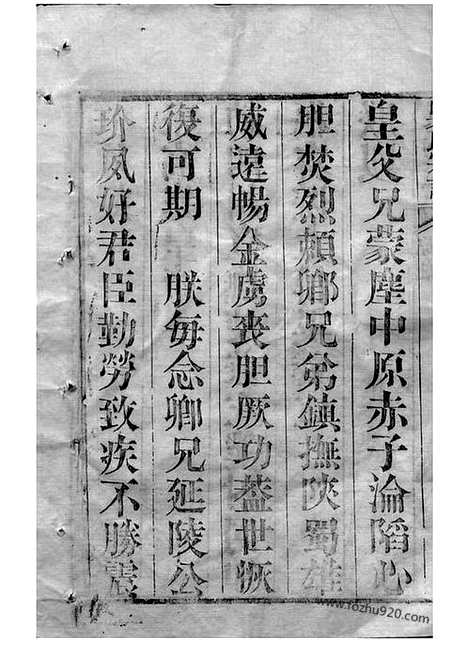 皇父兄蒙塵中原赤子淪陷心
胆焚烈頼鄉兄弟鎮撫陝蜀雄
威遠暢金虜丧胆厥功葢世恢
復可期　朕每念卿兄延陵公
殄夙好君臣勤勞致疾不勝震
www.fozhu920.com